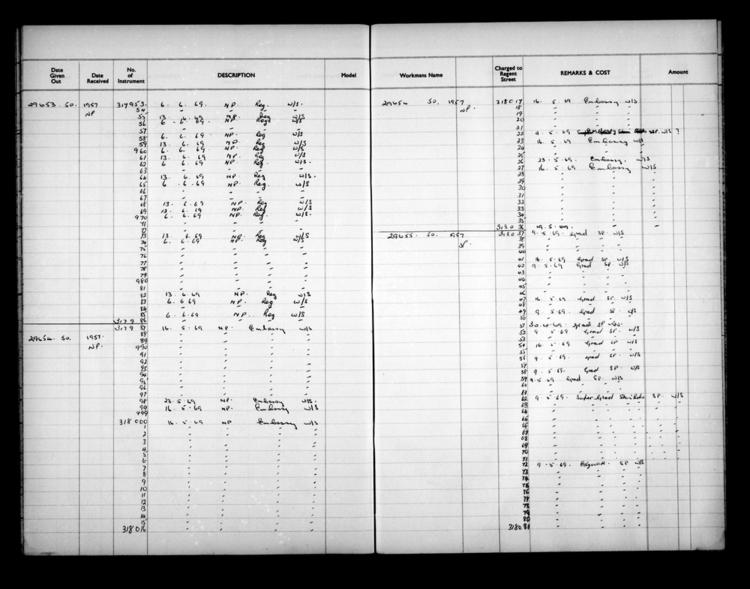 Date Given Out Date Received No. of Instrument DESCRIPTION Model
29653. 50. 1957 317953. 6. 6. 69. NP. Reg. W/S.
NP 54
55 13. 6. 69 NP. Reg W/S
56 6. 6. 69. NP. Reg W/S
57
58 6. 6. 69 NP. Reg W/S
59 13. 6. 69 NP. Reg W/S
960 6. 6. 69. NP. Reg W/S
61 13. 6. 69 NP. Reg W/S
62 6. 6. 69 NP. Reg W/S.
63
64 13. 6. 69 NP. Reg W/S
65 6. 6. 69 NP. Reg W/S
66
67
68 13. 6. 69 NP. Reg W/S
69 13. 6. 69 NP. Reg W/S
970 6. 6. 69 NP. Reg W/S
71
72
73 13. 6. 69 NP. Reg W/S
74 6. 6. 69 NP. Reg W/S
75
76
77
78
79
980
81
82 13. 6. 69 NP. Reg W/S
83 6. 6. 69 NP. Reg W/S
84
85 6. 6. 69 NP. Reg W/S
3179 86
3179 87 16. 5. 69 NP. Embassy W/S
88
29654. 50. 1957. 89
NP. 990
91
92
93
94
95
96
97
98 23. 5. 69 NP. Embassy W/S.
99 16. 5. 69 NP. Embassy W/S
318000 16. 5. 69 NP Embassy W/S
1
2
3
4
5
6
7
8
9
10
11
12
13
14
15
318016
Workmans Name Charged to Regent Street REMARKS & COST Amount
29654 50. 1957 318017 16. 5. 69 Embassy W/S
NP. 18
19
20
21
22 9. 5. 69
23 16. 5. 69 Embassy W/S
24
25
26 23. 5. 69 Embassy. W/S
27 16. 5. 69 Embassy W/S
28
29
30
31
32
33
34
35
3180 36
29655. 50. 1957 3180 37 9. 5. 69. Grad SP. W/S
SP. 38
39
40
41 16. 5. 69 Grad SP W/S
42 9. 5. 69 Grad SP. W/S
43
44
45
46
47 16. 5. 69 Grad SP. W/S
48
49 9. 5. 69 Grad SP. W/S
50
51 Grad SP W/S
52 9. 5. 69 Grad SP. W/S
53
54 16. 5. 69 Grad SP W/S
55
56 9. 5. 69 Grad SP. W/S
57
58 9. 5. 69 Grad SP. W/S
59 9. 5. 69 Grad SP. W/S
60
61
62 9. 5. 69. Super Grad SP. W/S
63
64
65
66
67
68
69
70
71
72 9. 5. 69. SP W/S
73
74
75
76
77
78
79
80
318081